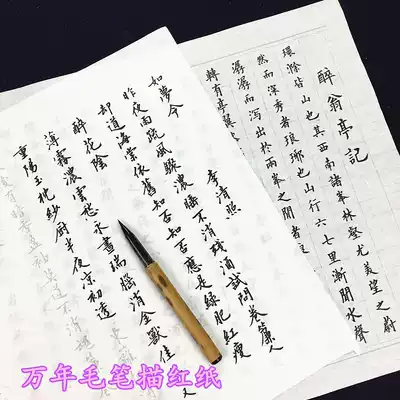 醉翁亭記
環滁皆山也其西南諸峯林壑尤美望之蔚
然而深秀者琅琊也山行六七里漸聞水聲
潺潺而瀉出於兩峯之間者
轉有亭翼
如夢令 李清照
昨夜雨疏風驟濃睡不消殘酒試問卷簾人
却道海棠依舊知否知否應是綠肥紅瘦
醉花陰
薄霧濃雲愁永晝瑞腦消金獸佳 又
重陽玉枕紗廚半夜涼初透
万年毛笔描红纸